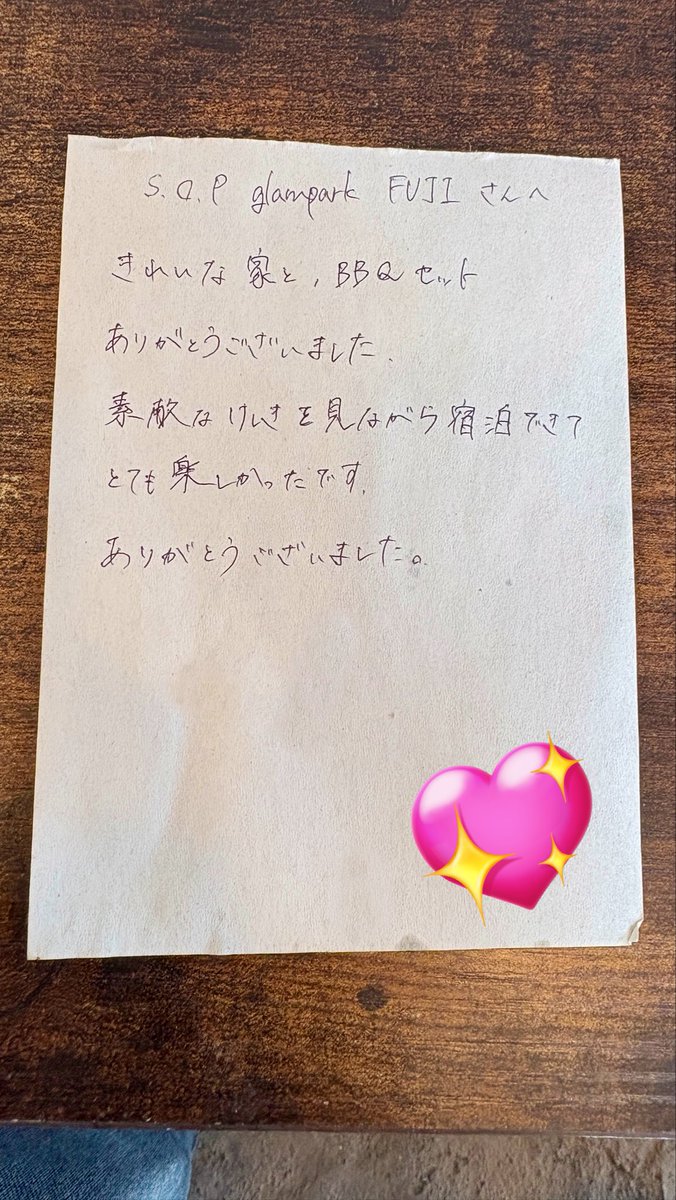 S.O.P glampark FUJI さんへ
きれいな家と,BBQセット
ありがとうございました.
素敵なけしきを見ながら宿泊できて
とても楽しかったです.
ありがとうございました。